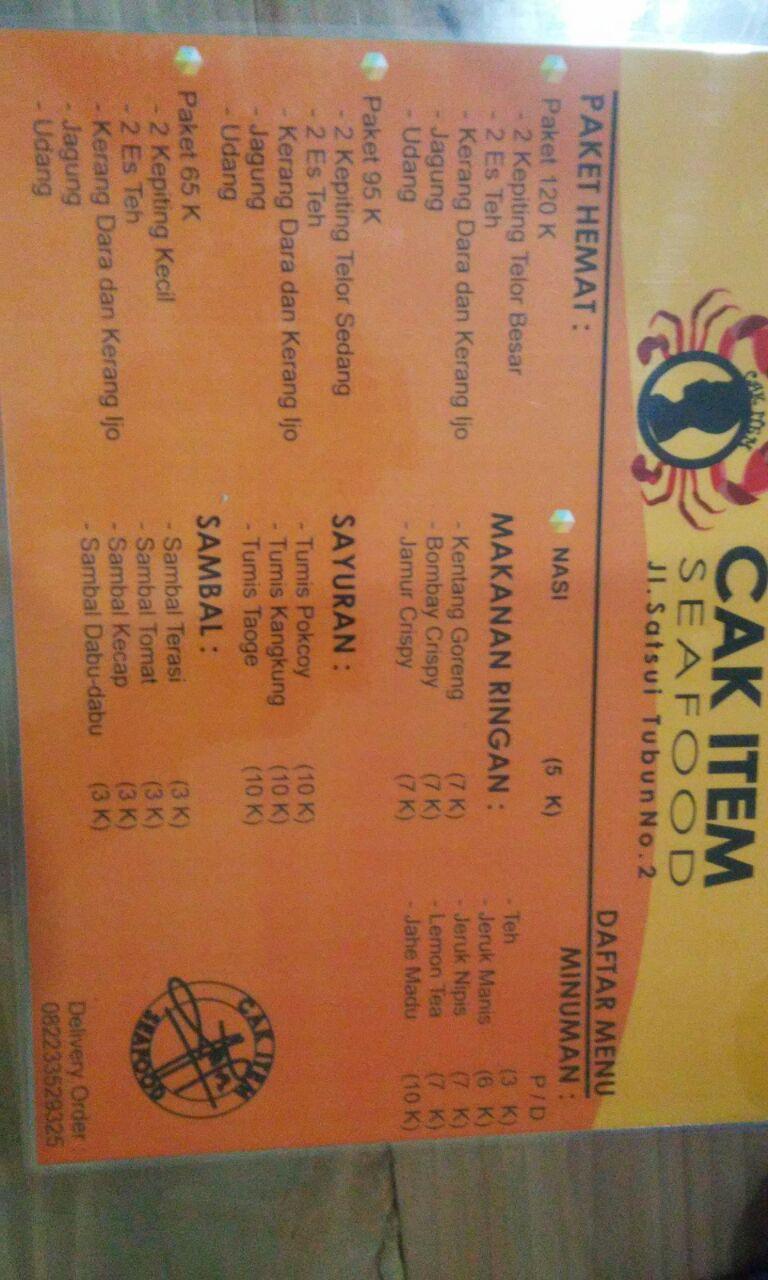 CAK ITEM
SEAFOOD
Jl. Satsui Tubun No. 2
CAK ITEM
DAFTAR MENU
PAKET HEMAT :
Paket 120 K
- 2 Kepiting Telor Besar
- 2 Es Teh
- Kerang Dara dan Kerang Ijo
- Jagung
- Udang
Paket 95 K
- 2 Kepiting Telor Sedang
- 2 Es Teh
- Kerang Dara dan Kerang Ijo
- Jagung
- Udang
Paket 65 K
- 2 Kepiting Kecil
- 2 Es Teh
- Kerang Dara dan Kerang Ijo
- Jagung
- Udang
NASI (5 K)
MAKANAN RINGAN :
- Kentang Goreng (7 K)
- Bombay Crispy (7 K)
- Jamur Crispy (7 K)
SAYURAN :
- Tumis Pokcoy (10 K)
- Tumis Kangkung (10 K)
- Tumis Taoge (10 K)
SAMBAL :
- Sambal Terasi (3 K)
- Sambal Tomat (3 K)
- Sambal Kecap (3 K)
- Sambal Dabu-dabu (3 K)
MINUMAN :
P / D
- Teh (3 K)
- Jeruk Manis (6 K)
- Jeruk Nipis (7 K)
- Lemon Tea (7 K)
- Jahe Madu (10 K)
CAK ITEM
SEAFOOD
Delivery Order :
082233529325